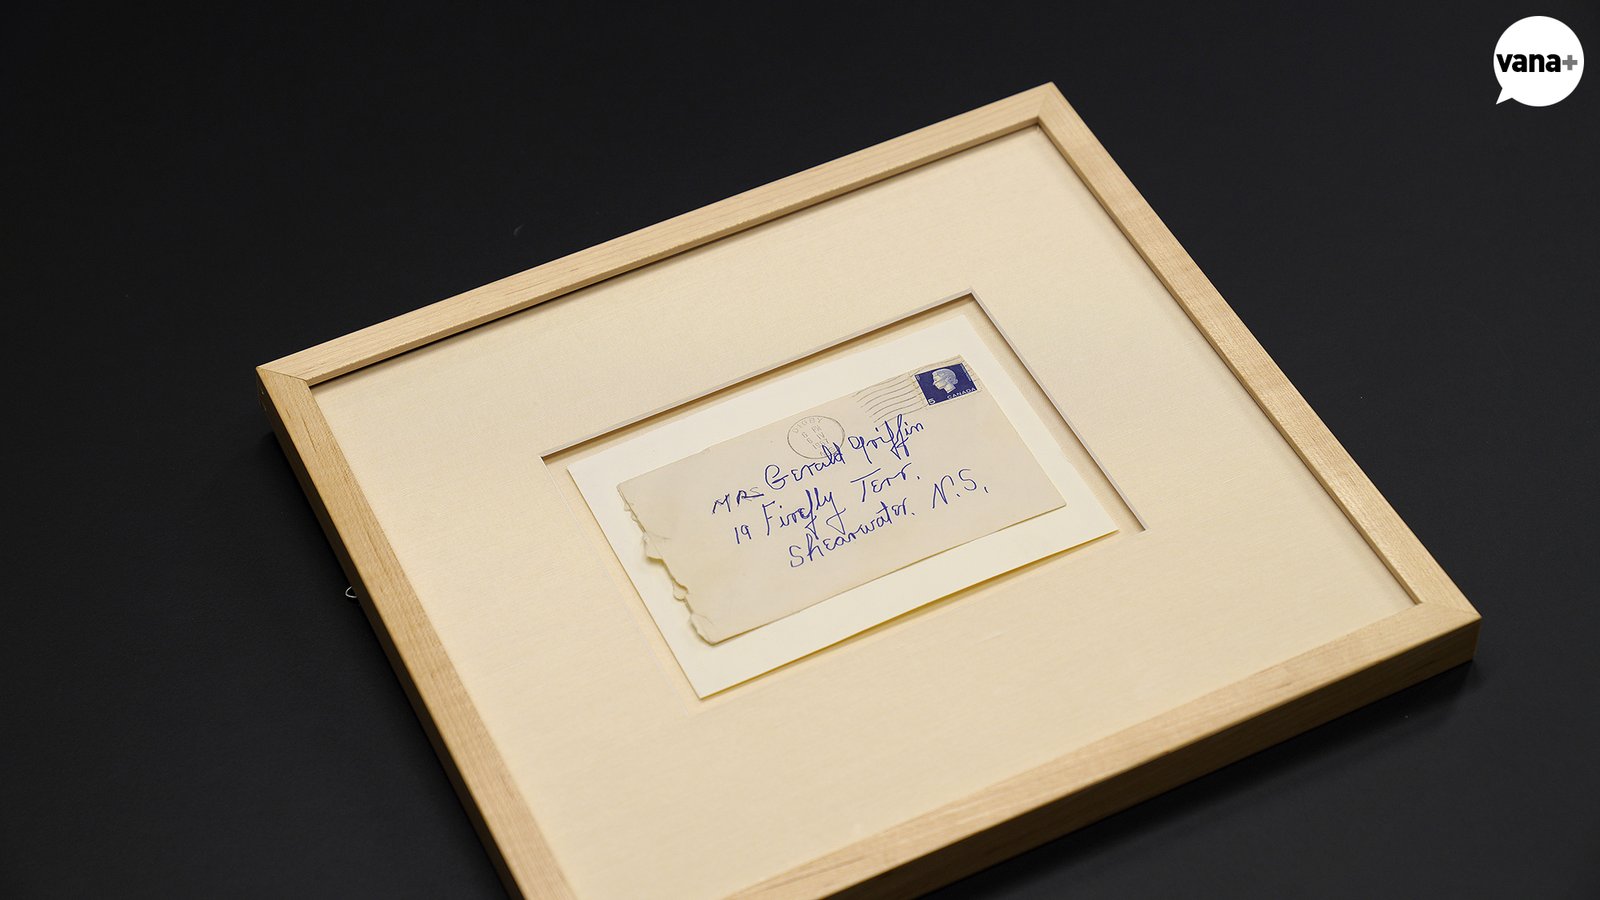 vana+
5
CANADA
DIGBY
PM
MRS Gerald Griffin
19 Firefly Terr.
Shearwater. N.S.